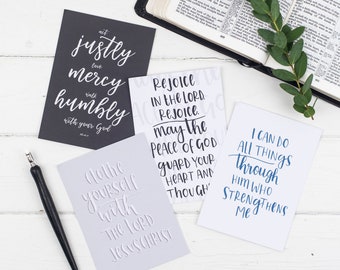 act
justly
love
mercy
walk
humbly
with your God
REJOICE
IN THE LORD
REJOICE
MAY THE
PEACE OF GOD
GUARD YOUR
HEART AND
THOUGHTS
I CAN DO
ALL THINGS
THROUGH
HIM WHO
STRENGTHENS
ME
CLOTHE
YOURSELF
WITH
THE LORD
JESUS CHRIST